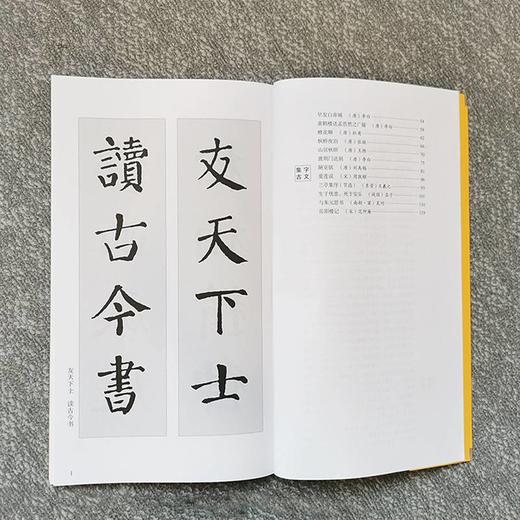 友天下士
讀古今書
友天下士 读古今书
1
早发白帝城 (唐) 李白 54
黄鹤楼送孟浩然之广陵 (唐) 李白 58
(唐) 杜甫 62
枫桥夜泊 (唐) 张继 66
山居秋暝 (唐) 王维 70
渡荆门送别 (唐) 李白 75
陋室铭 (唐) 刘禹锡 81
爱莲说 (宋) 周敦颐 88
兰亭集序(节选) (东晋) 王羲之 95
生于忧患,死于安乐 (战国) 孟子 103
与朱元思书 (南朝·梁) 吴均 110
岳阳楼记 (宋) 范仲淹 119
集字古文